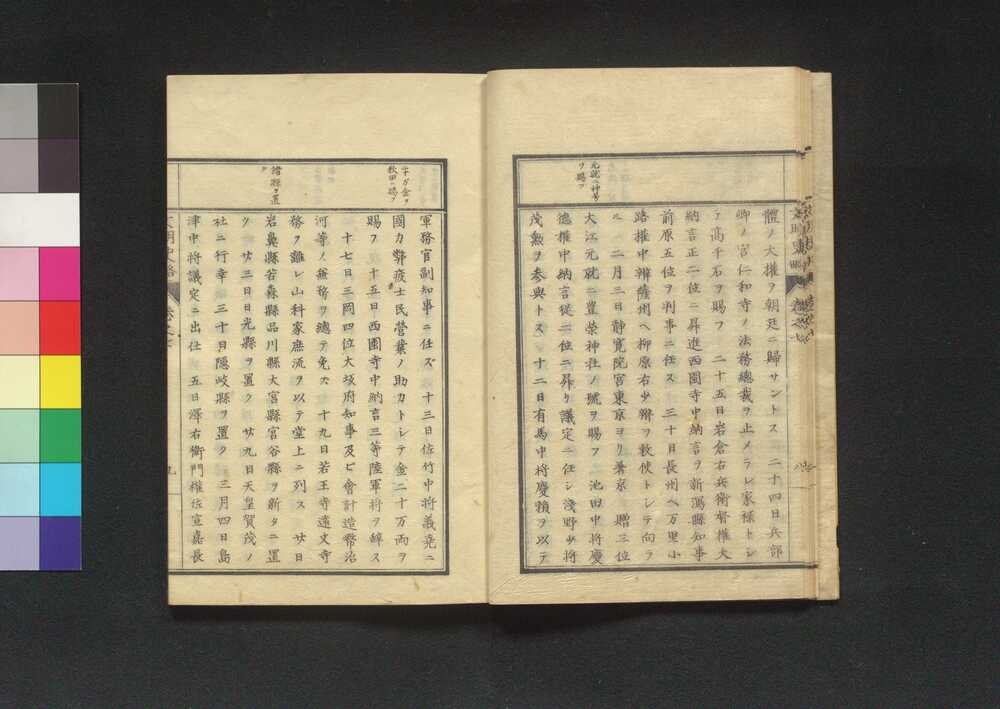 元就ニ神号
ヲ賜フ
體ノ大權ヲ朝廷ニ歸サントス 二十四日兵部
卿ノ宮仁和寺ノ法務總裁ヲ止メラレ家禄トシ
テ高千石ヲ賜フ 二十五日岩倉右兵衞督權大
納言正二位ニ昇進西園寺中納言ヲ新潟縣知事
前原五位ヲ判事ニ任ス 三十日長州ヘ万里小
路權中辨薩州ヘ柳原右少辨ヲ敕使トシテ向ラ
ル 二月三日静寛院宮東京ヨリ著京 贈三位
大江元就ニ豊榮神社ノ號ヲ賜フ 池田中将慶
德權中納言從二位ニ昇リ議定ニ任シ淺野少将
茂勲ヲ参與トス 十二日有馬中将慶頼ヲ以テ
二十万金ヲ
秋田ニ賜フ
諸縣ヲ置
ク
軍務官副知事ニ任ズ 十三日佐竹中将義堯ニ
國力弊疲士民營業ノ助カトシテ金二十万両ヲ
賜フ 十五日西園寺中納言三等陸軍将ヲ辭ス
十七日三岡四位大坂府知事及ビ會計造幣治
河等ノ兼務ヲ總テ免ス 十九日若王寺遠文寺
務ヲ離レ山科家庶流ヲ以テ堂上ニ列ス 廿日
岩鼻縣若森縣品川縣大宮縣宮谷縣ヲ新タニ置
ク 廿三日日光縣ヲ置ク 廿九日天皇賀茂ノ
社ニ行幸 三十日隠岐縣ヲ置ク 三月四日島
津中将議定ニ出仕 五日澤右衞門權佐宣嘉長